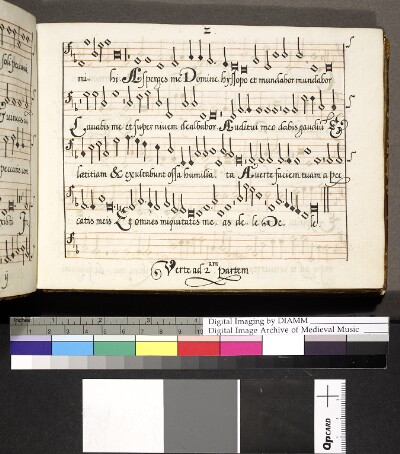 2
mi- hi. Asperges me Domine hyssopo et mundabor mundabor
Lavabis me et super nivem dealbabor. Auditui meo dabis gaudiū Et
lætitiam & exultabunt ossa humilia- ta Averte faciem tuam a pec
catis meis Et omnes iniquitates me- as de- le De- le
Verte ad 2 am partem
Inches
Digital Imaging by DIAMM
Digital Image Archive of Medieval Music
OpCARD